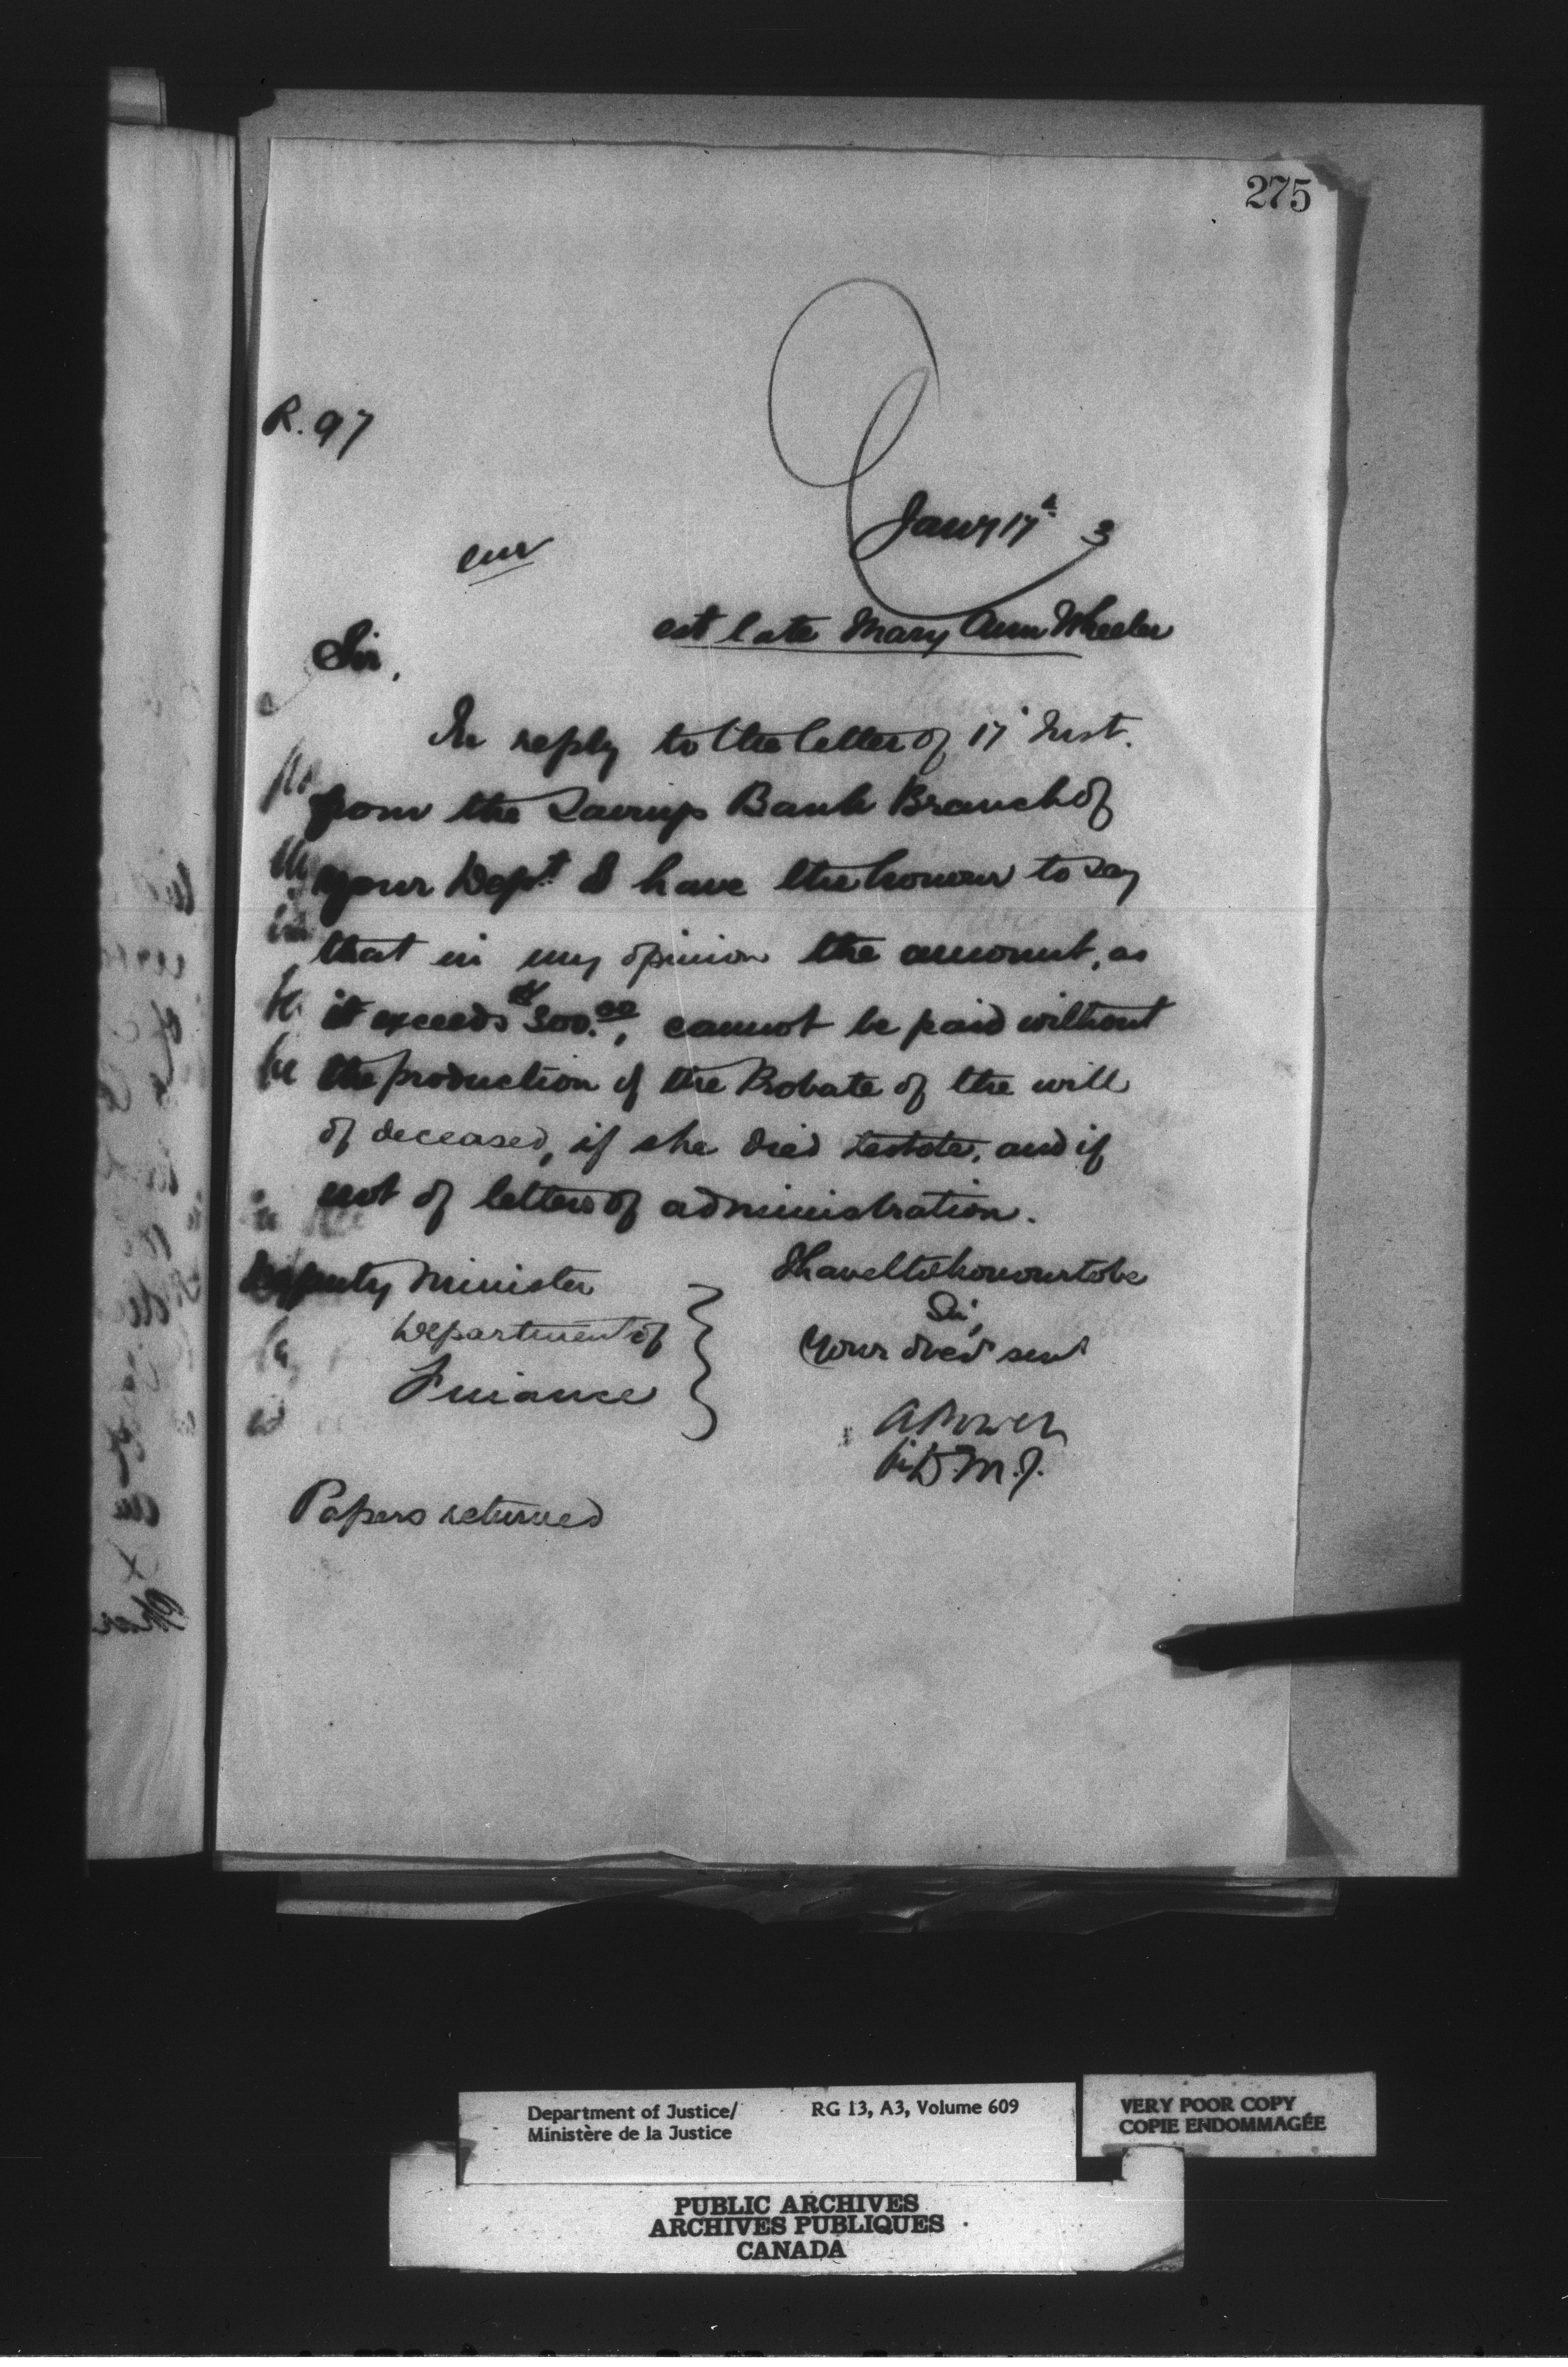 275
R. 97
Jany 17th 3
est late Mary Ann Wheeler
Sir,
In reply to the letter of 17 Inst.
from the Savings Bank Branch of
your Dept I have the honour to say
that in my opinion the amount, as
it exceeds $300.00, cannot be paid without
the production of the Probate of the will
of deceased, if she died testate, and if
not of letters of administration.
I have the honour to be
Sir,
Your obedt servt
A Power
for D.M.J.
Deputy Minister
Department of
Finance
Papers returned
Department of Justice/
Ministère de la Justice
RG 13, A3, Volume 609
VERY POOR COPY
COPIE ENDOMMAGÉE
PUBLIC ARCHIVES
ARCHIVES PUBLIQUES
CANADA